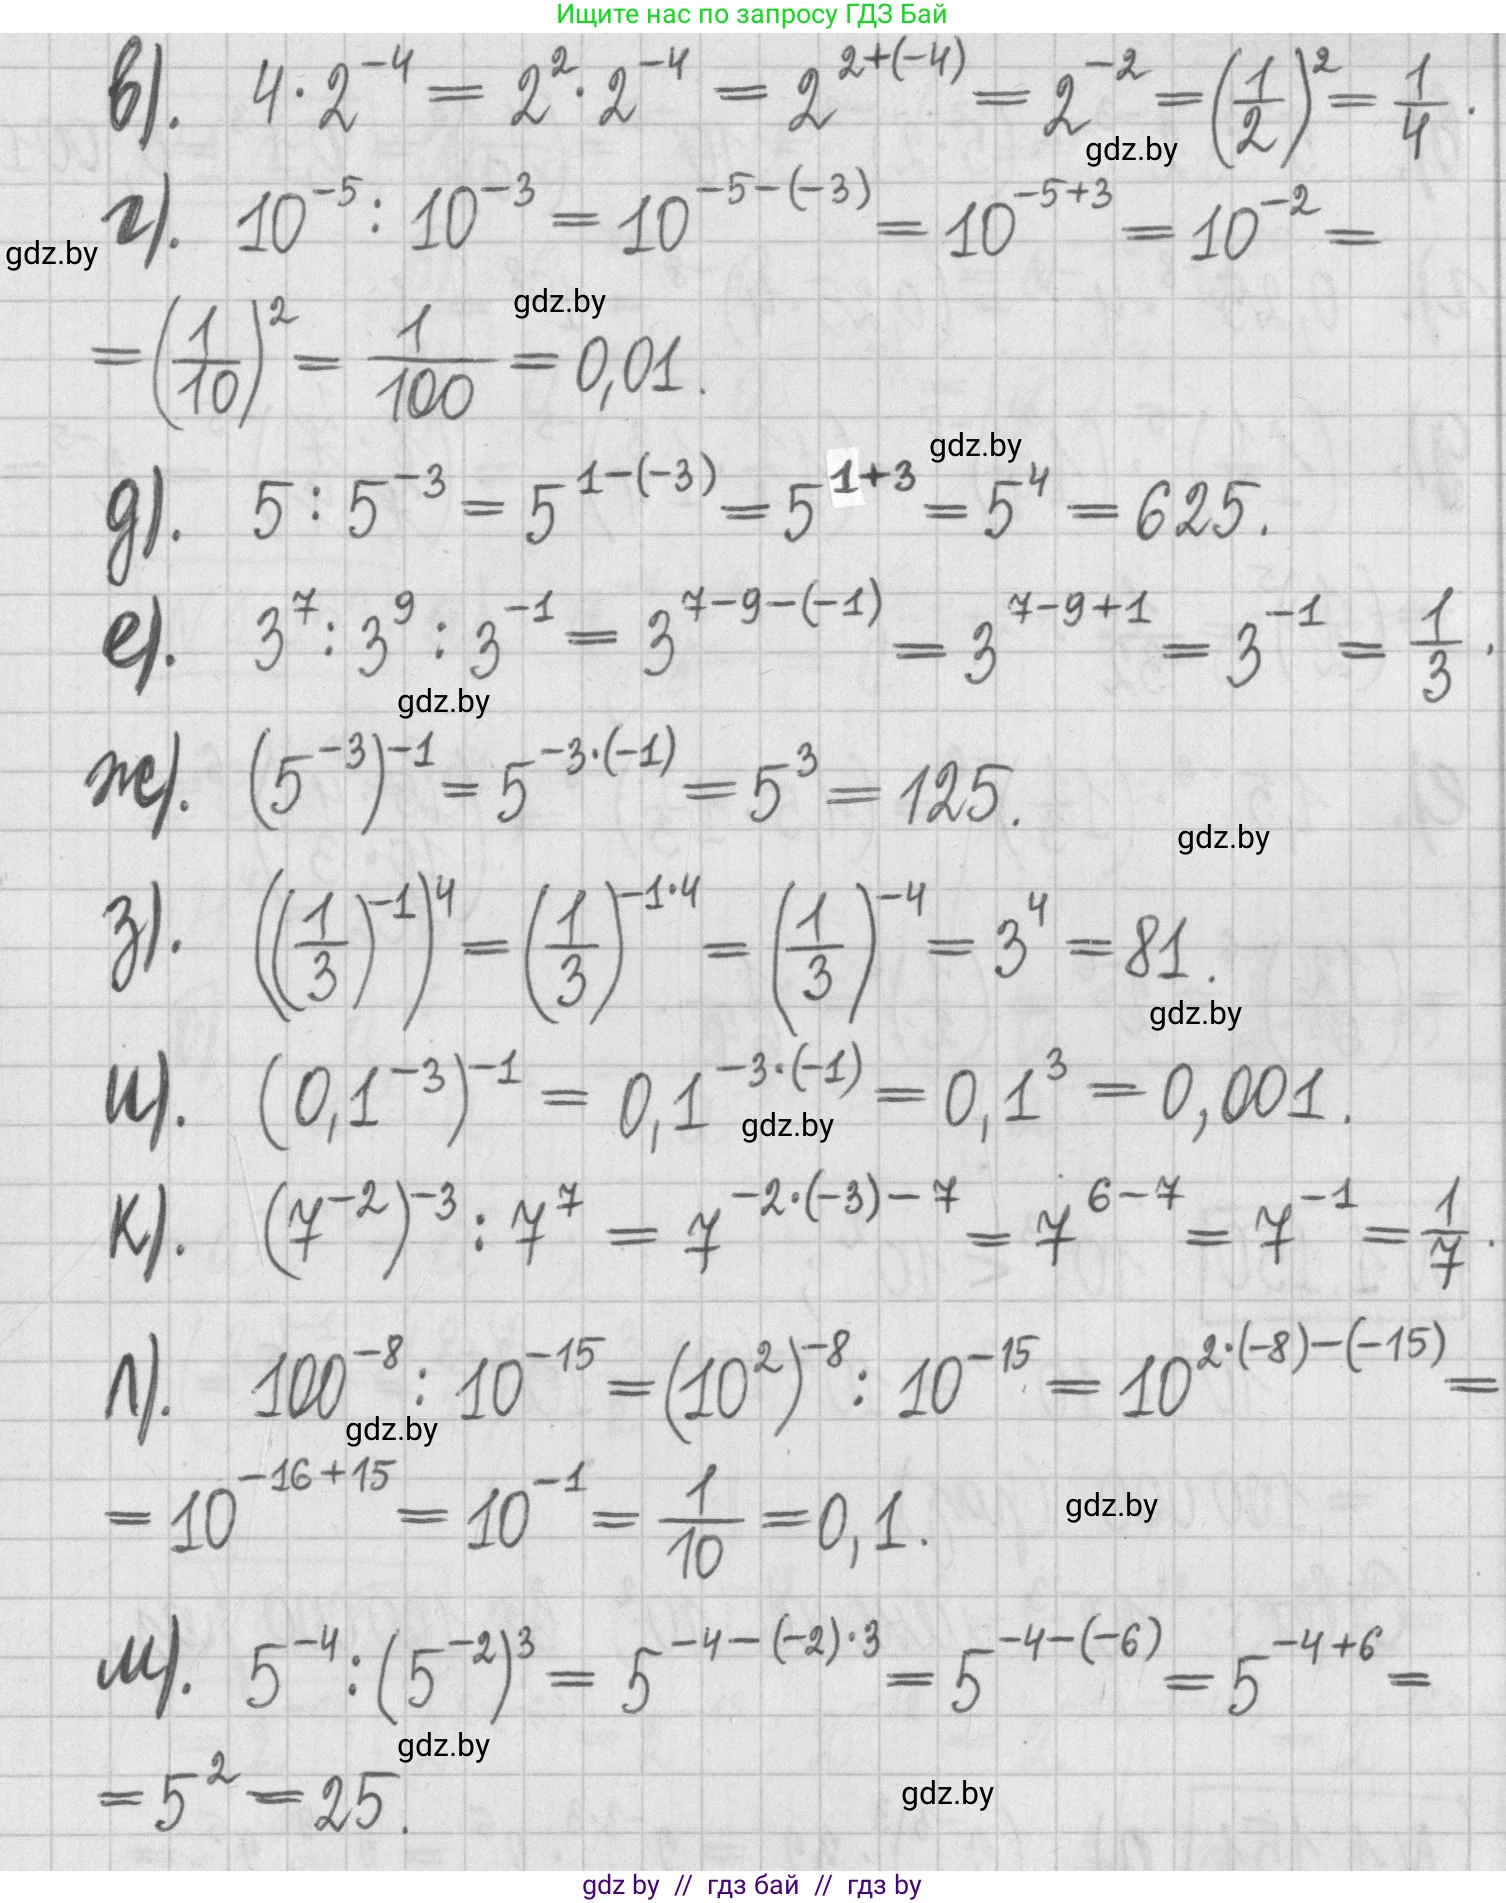 Ищите нас по запросу ГДЗ Бай
в). 4 · 2⁻⁴ = 2² · 2⁻⁴ = 2^(2+(-4)) = 2⁻² = (1/2)² = 1/4.
gdz.by
г). 10⁻⁵ : 10⁻³ = 10^(-5-(-3)) = 10^(-5+3) = 10⁻² =
gdz.by
gdz.by
= (1/10)² = 1/100 = 0,01.
gdz.by
д). 5 : 5⁻³ = 5^(1-(-3)) = 5^(1+3) = 5⁴ = 625.
е). 3⁷ : 3⁹ : 3⁻¹ = 3^(7-9-(-1)) = 3^(7-9+1) = 3⁻¹ = 1/3.
gdz.by
ж). (5⁻³)⁻¹ = 5^(-3·(-1)) = 5³ = 125.
gdz.by
з). ((1/3)⁻¹)⁴ = (1/3)^(-1·4) = (1/3)⁻⁴ = 3⁴ = 81.
gdz.by
и). (0,1⁻³)⁻¹ = 0,1^(-3·(-1)) = 0,1³ = 0,001.
gdz.by
к). (7⁻²)⁻³ : 7⁷ = 7^(-2·(-3)-7) = 7^(6-7) = 7⁻¹ = 1/7.
л). 100⁻⁸ : 10⁻¹⁵ = (10²)⁻⁸ : 10⁻¹⁵ = 10^(2·(-8)-(-15)) =
gdz.by
= 10^(-16+15) = 10⁻¹ = 1/10 = 0,1.
gdz.by
м). 5⁻⁴ : (5⁻²)³ = 5^(-4-(-2)·3) = 5^(-4-(-6)) = 5^(-4+6) =
gdz.by
= 5² = 25.
gdz.by
gdz by // гдз бай // гдз by